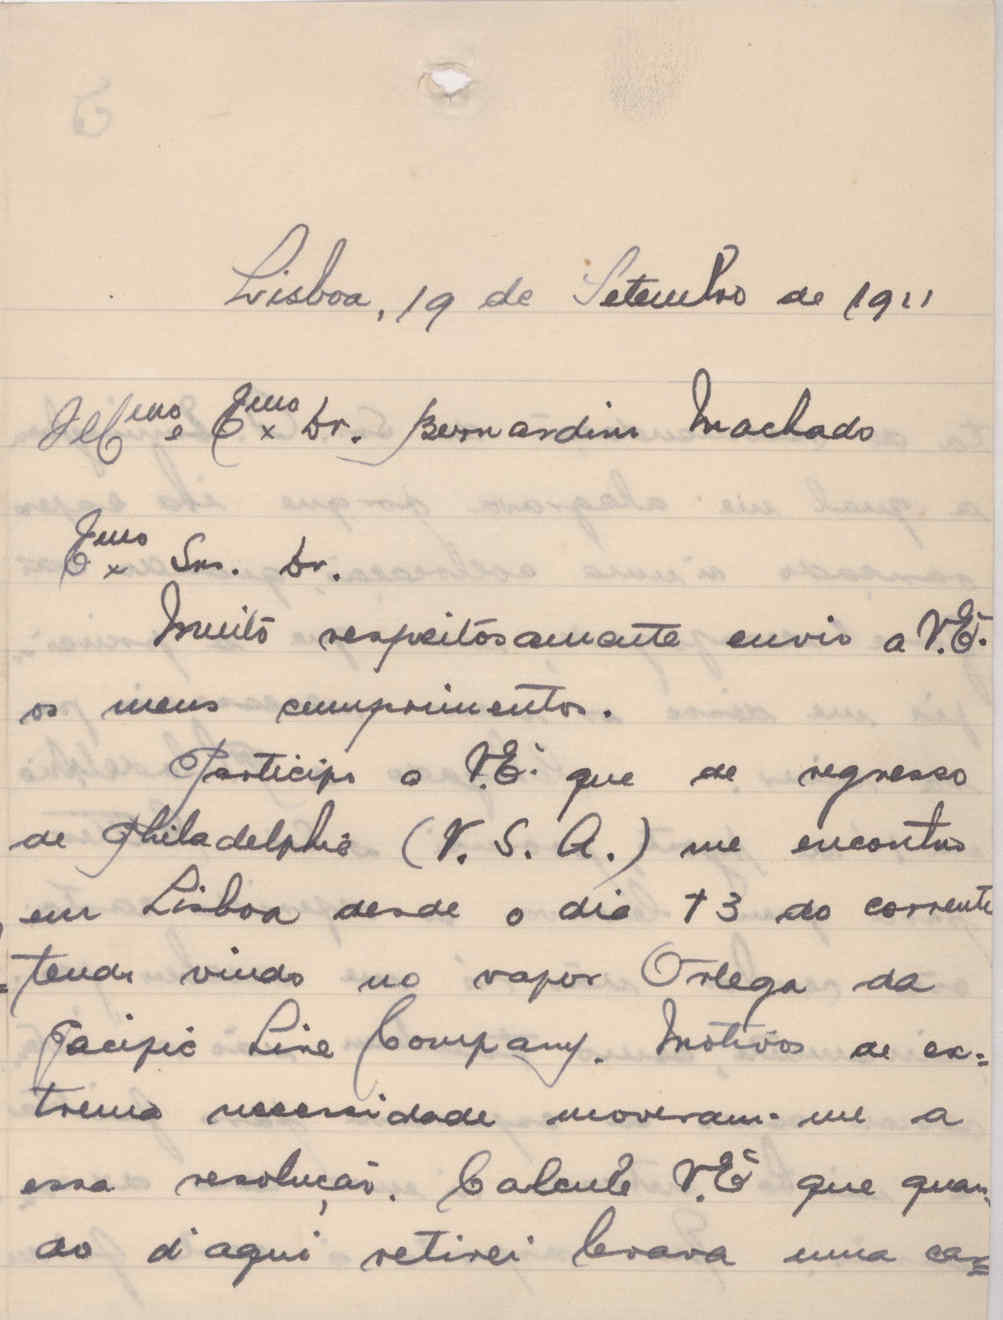 Lisboa, 19 de Setembro de 1911
Illmo e Exmo Dr. Bernardino Machado
Exmo Snr. Dr.
Muito respeitosamente envio a V.Eª.
os meus cumprimentos.
Participo a V.Eª. que de regresso
de Philadelphia (V. S. A.) me encontro
em Lisboa desde o dia 13 do corrente
tendo vindo no vapor Ortega da
Pacific Line Company. Motivos de ex=
trema necessidade moveram-me a
essa resolução. Calcule V.Eª que quan-
do d'aqui retirei levava uma car=